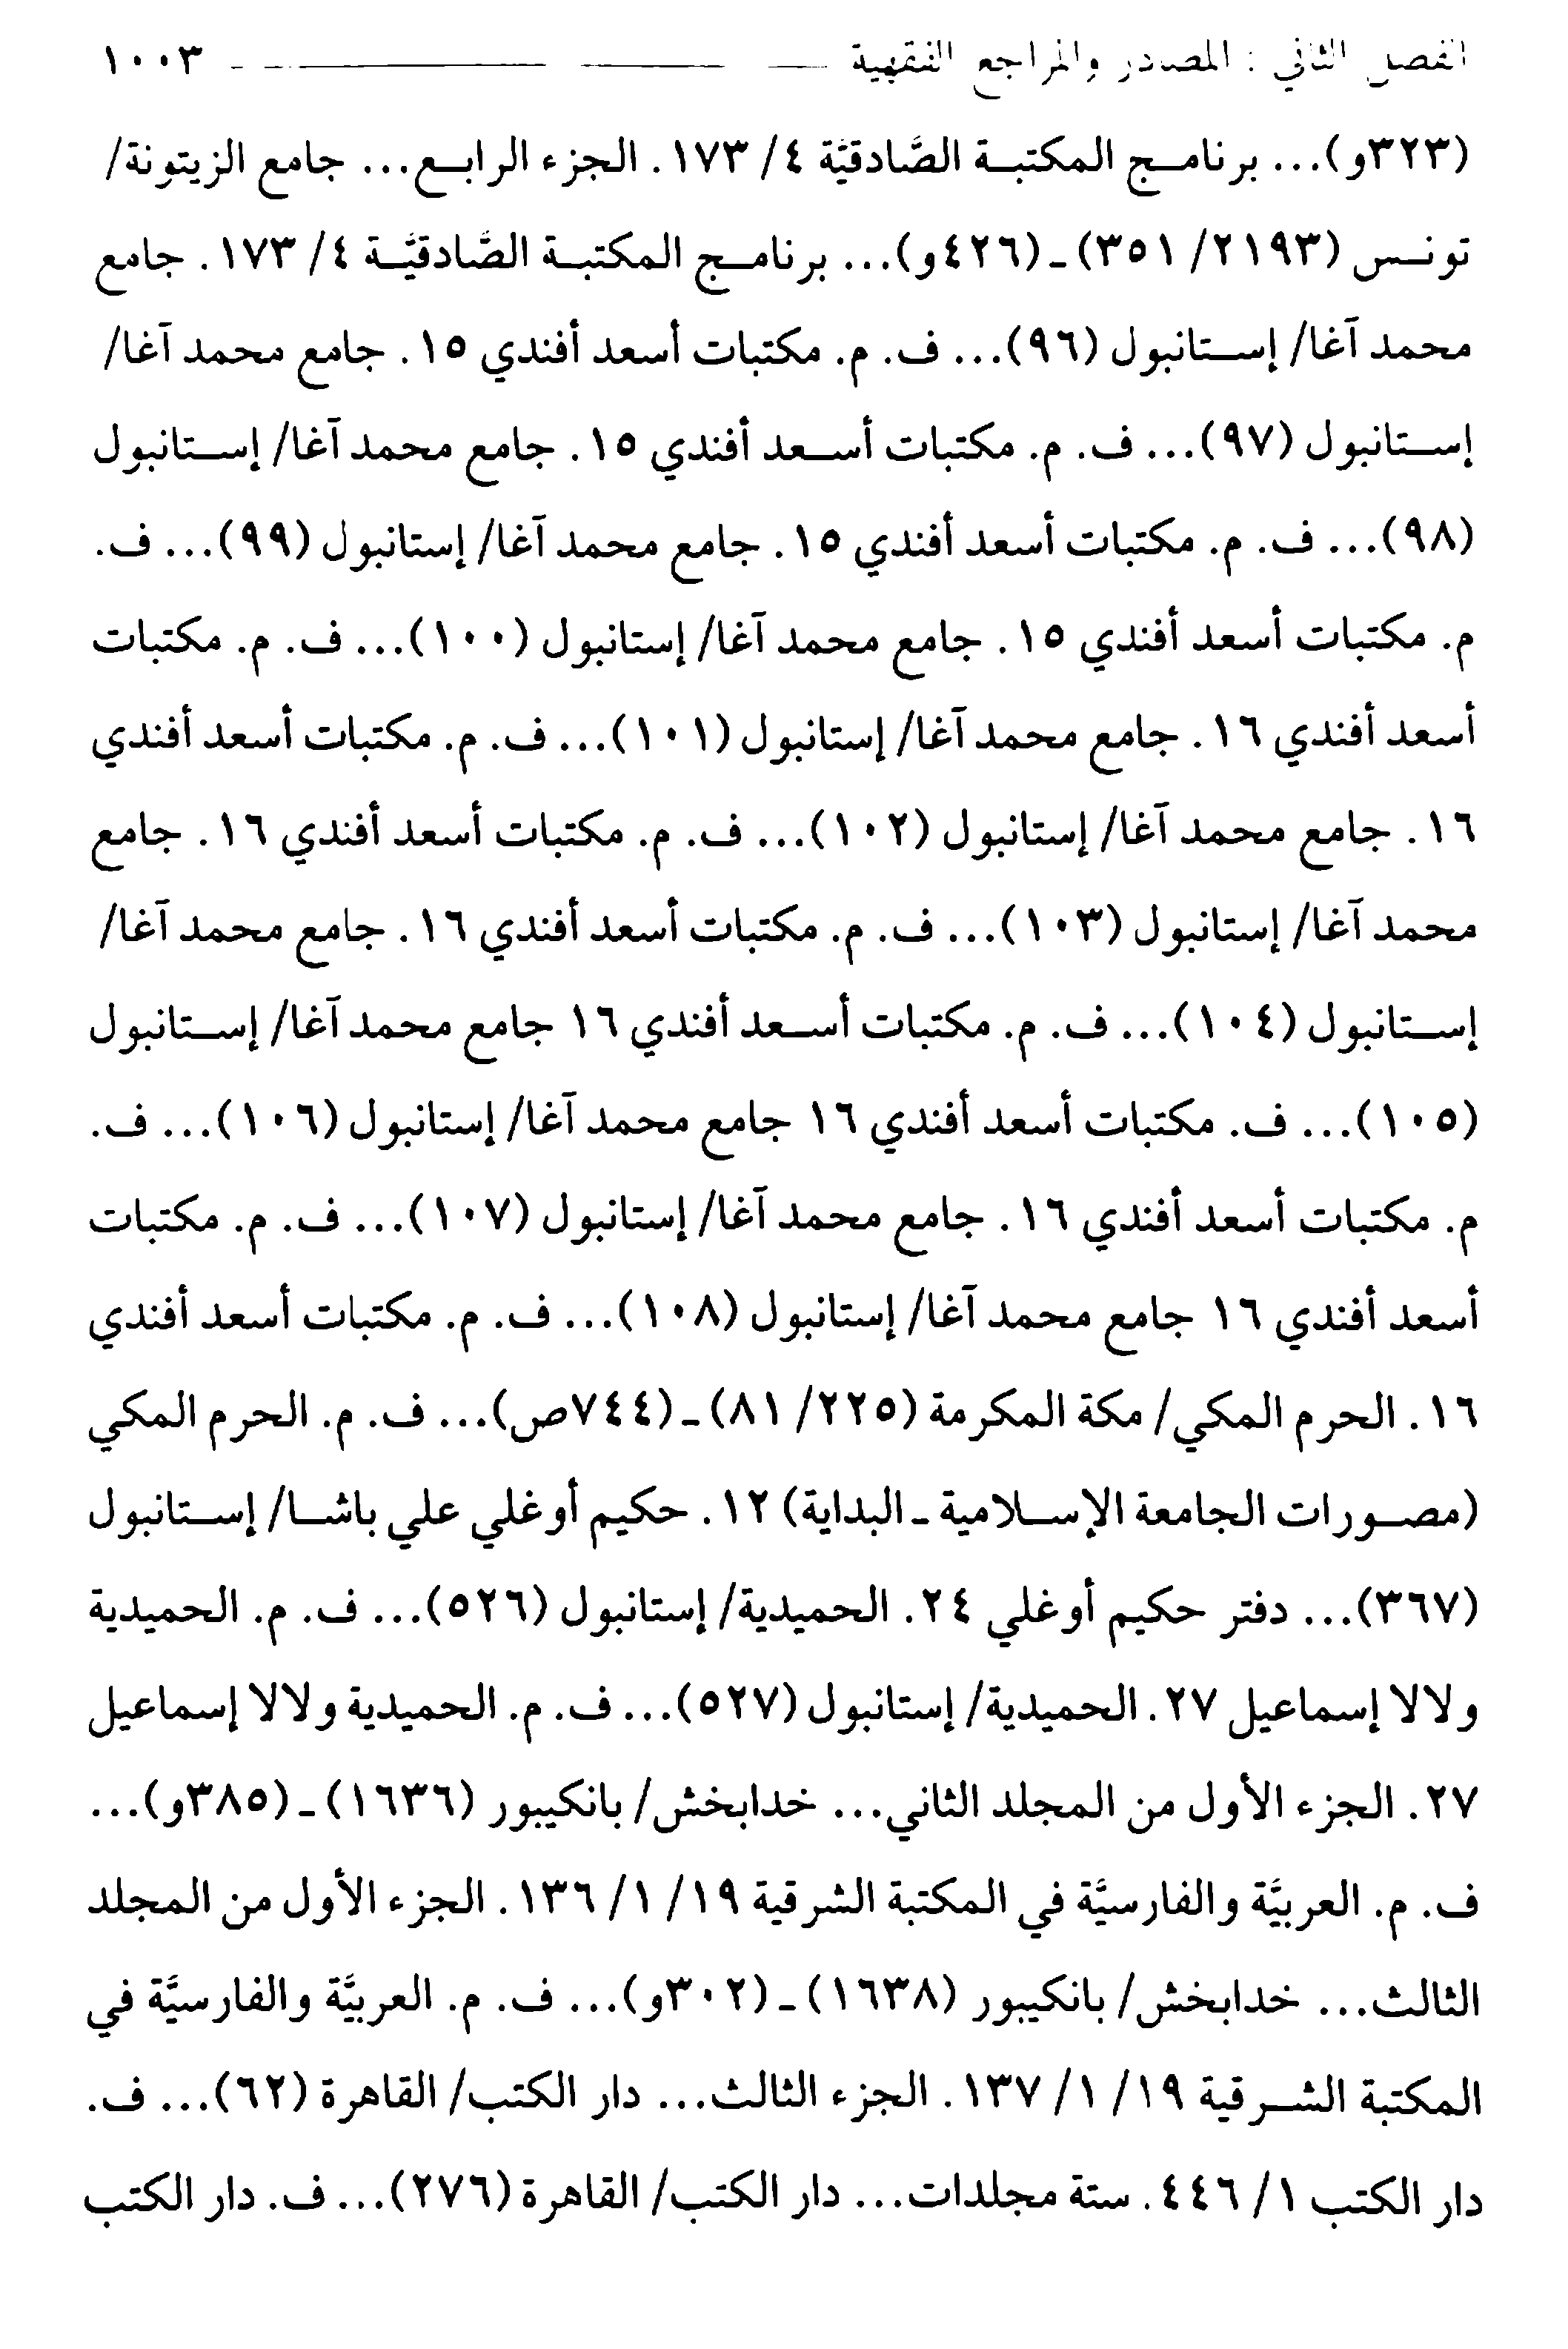 الفصل الثاني : المصادر والمراجع الفقهية ١٠٠٣
(٣٢٣و)... برنامج المكتبة الصَّادقيَّة ٤/ ١٧٣. الجزء الرابع... جامع الزيتونة/
تونس (٢١٩٣/ ٣٥١) ـ (٤٢٦و)... برنامج المكتبة الصَّادقيَّة ٤/ ١٧٣. جامع
محمد آغا/ إستانبول (٩٦)... ف. م. مكتبات أسعد أفندي ١٥. جامع محمد آغا/
إستانبول (٩٧)... ف. م. مكتبات أسعد أفندي ١٥. جامع محمد آغا/ إستانبول
(٩٨)... ف. م. مكتبات أسعد أفندي ١٥. جامع محمد آغا/ إستانبول (٩٩)... ف.
م. مكتبات أسعد أفندي ١٥. جامع محمد آغا/ إستانبول (١٠٠)... ف. م. مكتبات
أسعد أفندي ١٦. جامع محمد آغا/ إستانبول (١٠١)... ف. م. مكتبات أسعد أفندي
١٦. جامع محمد آغا/ إستانبول (١٠٢)... ف. م. مكتبات أسعد أفندي ١٦. جامع
محمد آغا/ إستانبول (١٠٣)... ف. م. مكتبات أسعد أفندي ١٦. جامع محمد آغا/
إستانبول (١٠٤)... ف. م. مكتبات أسعد أفندي ١٦ جامع محمد آغا/ إستانبول
(١٠٥)... ف. مكتبات أسعد أفندي ١٦ جامع محمد آغا/ إستانبول (١٠٦)... ف.
م. مكتبات أسعد أفندي ١٦. جامع محمد آغا/ إستانبول (١٠٧)... ف. م. مكتبات
أسعد أفندي ١٦ جامع محمد آغا/ إستانبول (١٠٨)... ف. م. مكتبات أسعد أفندي
١٦. الحرم المكي/ مكة المكرمة (٢٢٥/ ٨١) ـ (٧٤٤ص)... ف. م. الحرم المكي
(مصورات الجامعة الإسلامية ـ البداية) ١٢. حكيم أوغلي علي باشا/ إستانبول
(٣٦٧)... دفتر حكيم أوغلي ٢٤. الحميدية/ إستانبول (٥٢٦)... ف. م. الحميدية
ولالا إسماعيل ٢٧. الحميدية/ إستانبول (٥٢٧)... ف. م. الحميدية ولالا إسماعيل
٢٧. الجزء الأول من المجلد الثاني... خدابخش/ بانكيبور (١٦٣٦) ـ (٣٨٥و)...
ف. م. العربيَّة والفارسيَّة في المكتبة الشرقية ١٩/ ١/ ١٣٦. الجزء الأول من المجلد
الثالث... خدابخش/ بانكيبور (١٦٣٨) ـ (٣٠٢و)... ف. م. العربيَّة والفارسيَّة في
المكتبة الشرقية ١٩/ ١/ ١٣٧. الجزء الثالث... دار الكتب/ القاهرة (٦٢)... ف.
دار الكتب ١/ ٤٤٦. ستة مجلدات... دار الكتب/ القاهرة (٢٧٦)... ف. دار الكتب